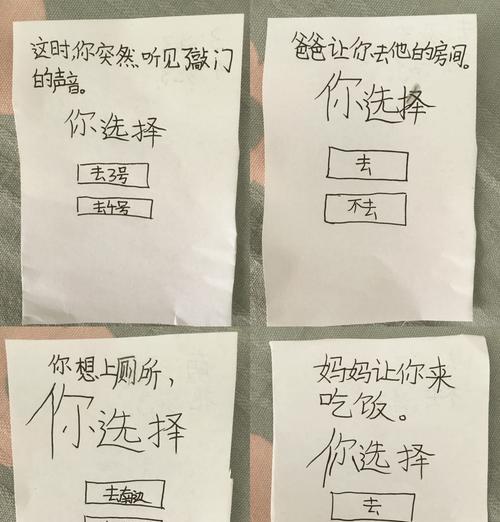 这时,你突然听见了敲门
的声音。
你选择
去3号
去4号
爸爸让你去他的房间。
你选择
去
不去
你想上厕所,
你选择
去南边
妈妈让你来
吃饭。
你选择
去